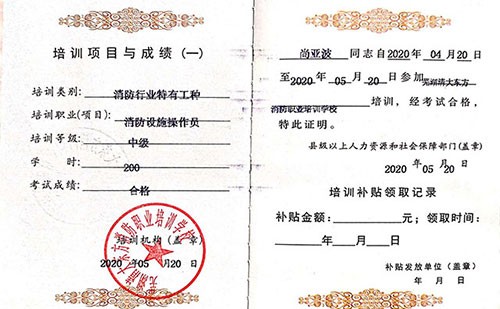 培训项目与成绩(一)
培训类别: 消防行业特有工种
培训职业(项目): 消防设施操作员
培训等级: 中级
学 时: 200
考试成绩: 合格
培训机构(盖章)
2020 年05 月20 日
尚亚波 同志自2020年 04月20日
至2020年 05月 20日参加芜湖清大东方
消防职业培训学校 培训,经考试合格,
特此证明。
县级以上人力资源和社会保障部门(盖章)
2020 年 05月20日
培训补贴领取记录
补贴金额: 元; 领取时间:
年 月 日
补贴发放单位(盖章)
年 月 日